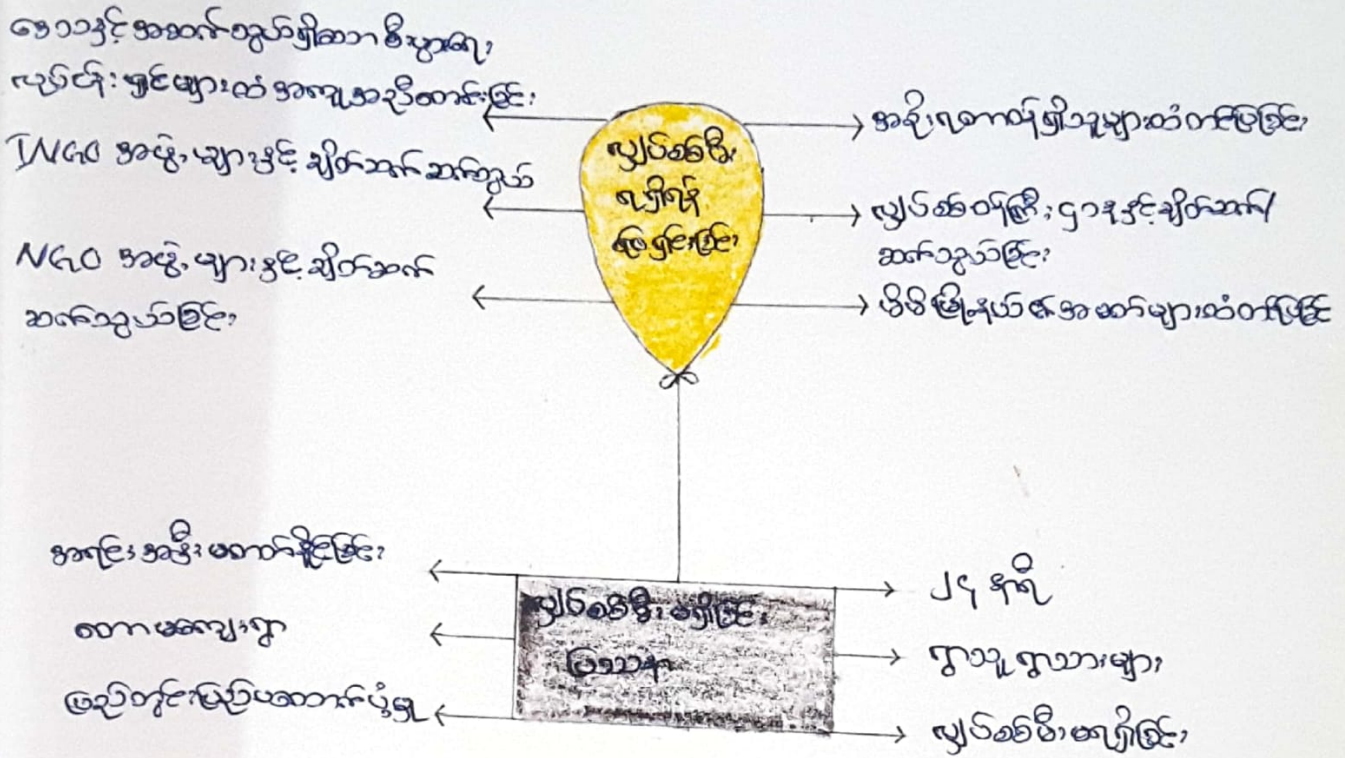 ဒေသနှင့်အဆက်အသွယ်ရှိသောစီးပွားရေး
လုပ်ငန်းရှင်များထံအကူအညီတောင်းခြင်း
INGO အဖွဲ့များနှင့်ချိတ်ဆက်ဆက်သွယ်
NGO အဖွဲ့များနှင့်ချိတ်ဆက်
ဆက်သွယ်ခြင်း
လျှပ်စစ်မီး
ရရှိရန်
ဖြေရှင်းခြင်း
အစိုးရတာဝန်ရှိသူများထံတင်ပြခြင်း
လျှပ်စစ်ဝန်ကြီးဌာနနှင့်ချိတ်ဆက်/
ဆက်သွယ်ခြင်း
မိမိမြို့နယ်၏အမတ်များထံတင်ပြခြင်း
အရင်းအနှီးမတတ်နိုင်ခြင်း
တာမကျေးရွာ
ပြည်တွင်းပြည်ပထောက်ပံ့မှု
လျှပ်စစ်မီးမရှိခြင်း
ပြဿနာ
၂၄ နာရီ
ရွာသူရွာသားများ
လျှပ်စစ်မီးမရရှိခြင်း